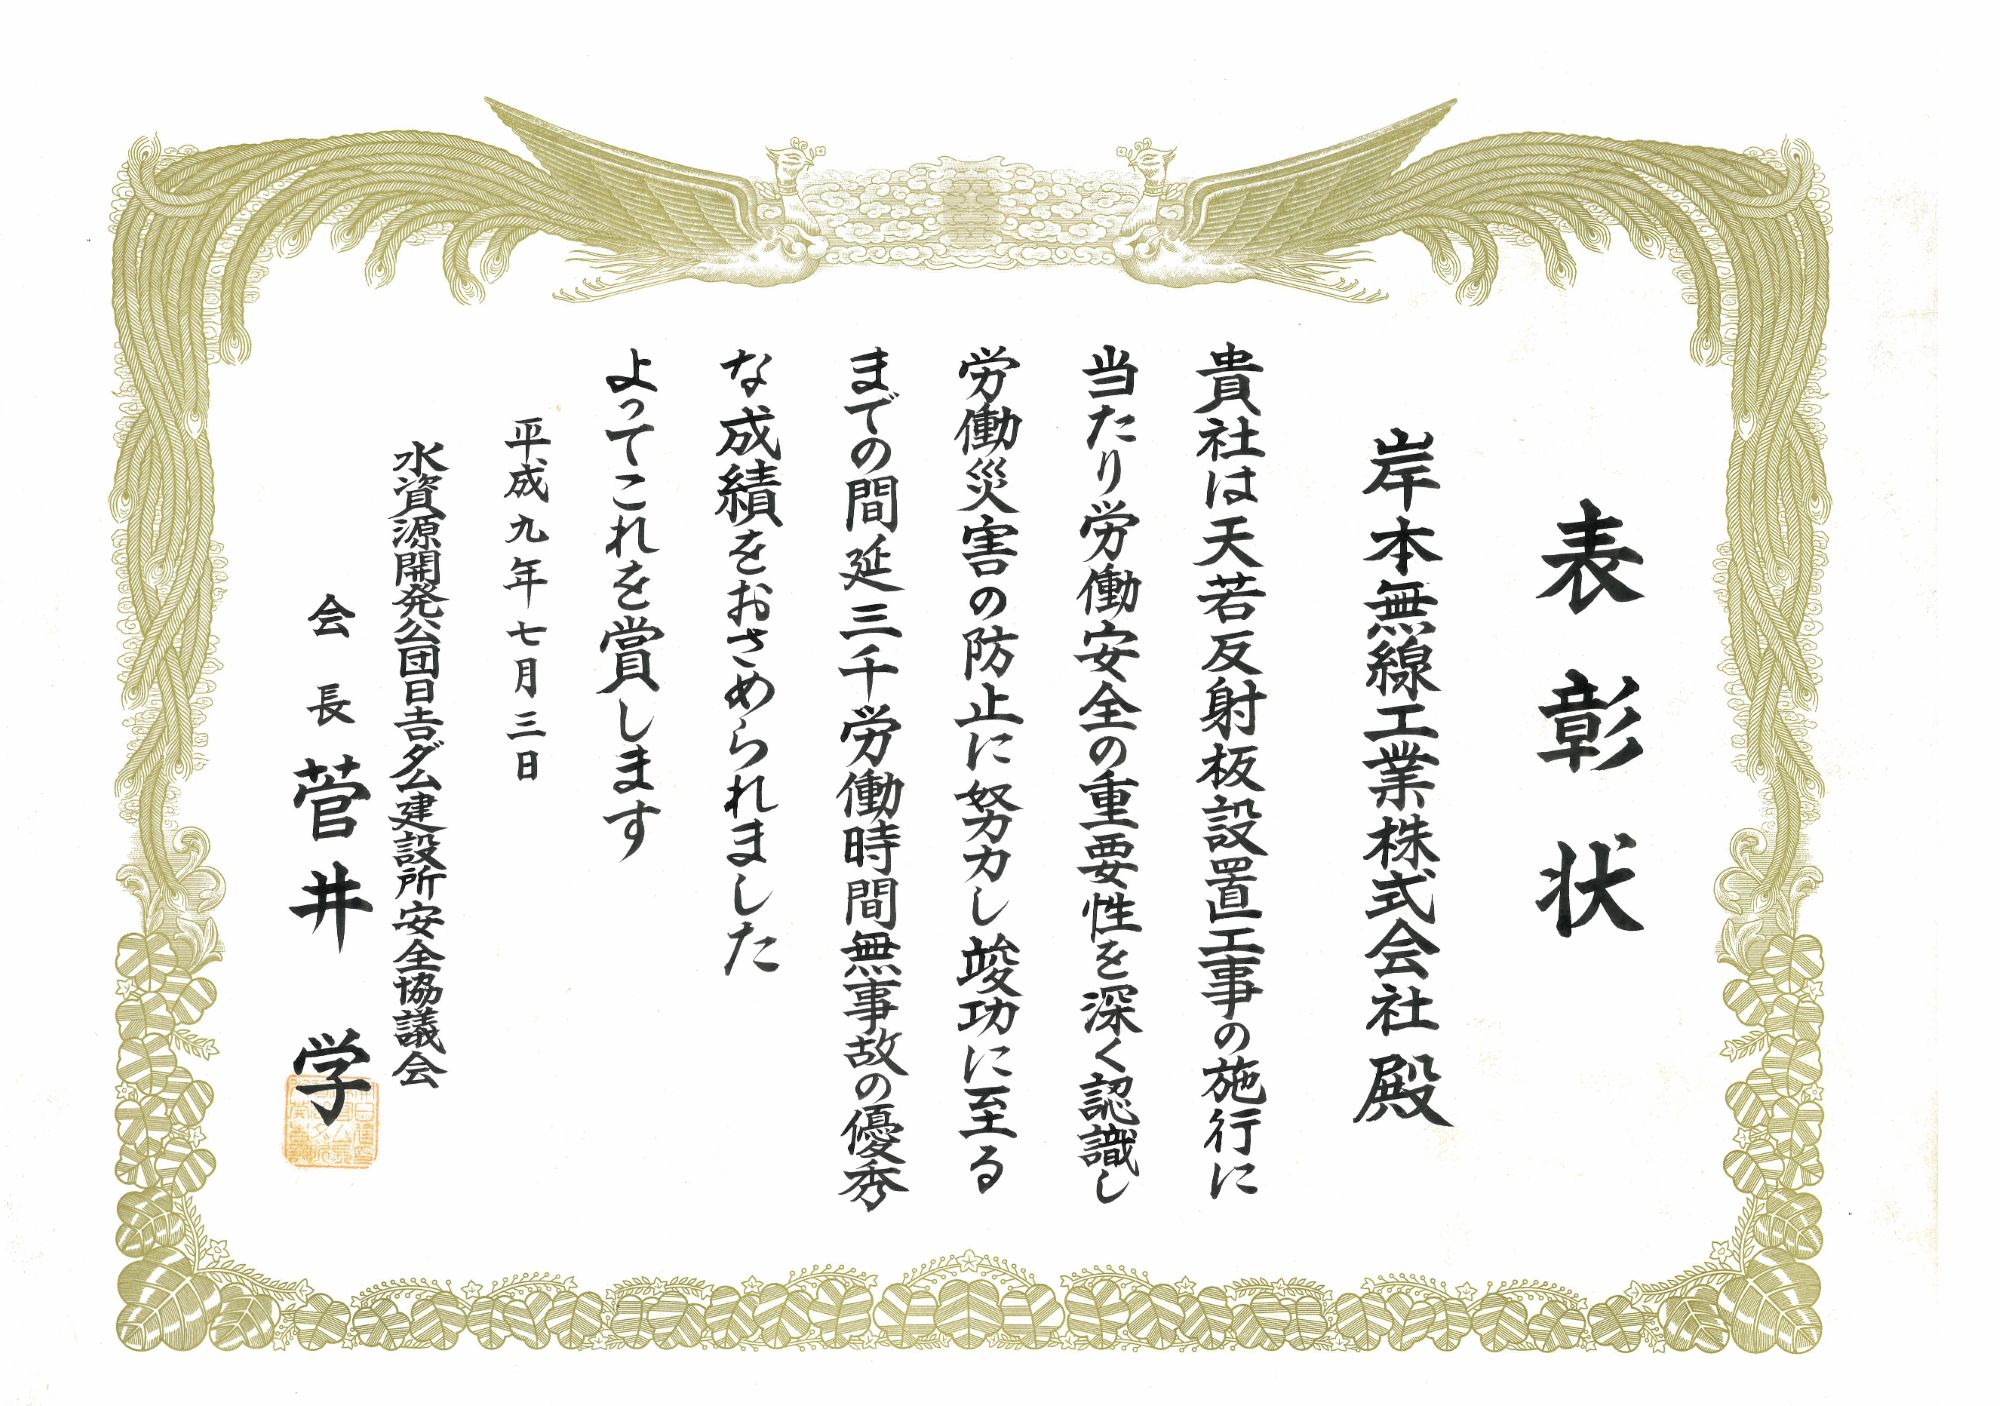 表彰状
岸本無線工業株式会社殿
貴社は天若反射板設置工事の施行に
当たり労働安全の重要性を深く認識し
労働災害の防止に努力し竣功に至る
までの間延三千労働時間無事故の優秀
な成績をおさめられました
よってこれを賞します
平成九年七月三日
水資源開発公団日吉ダム建設所安全協議会
会長 菅井 学